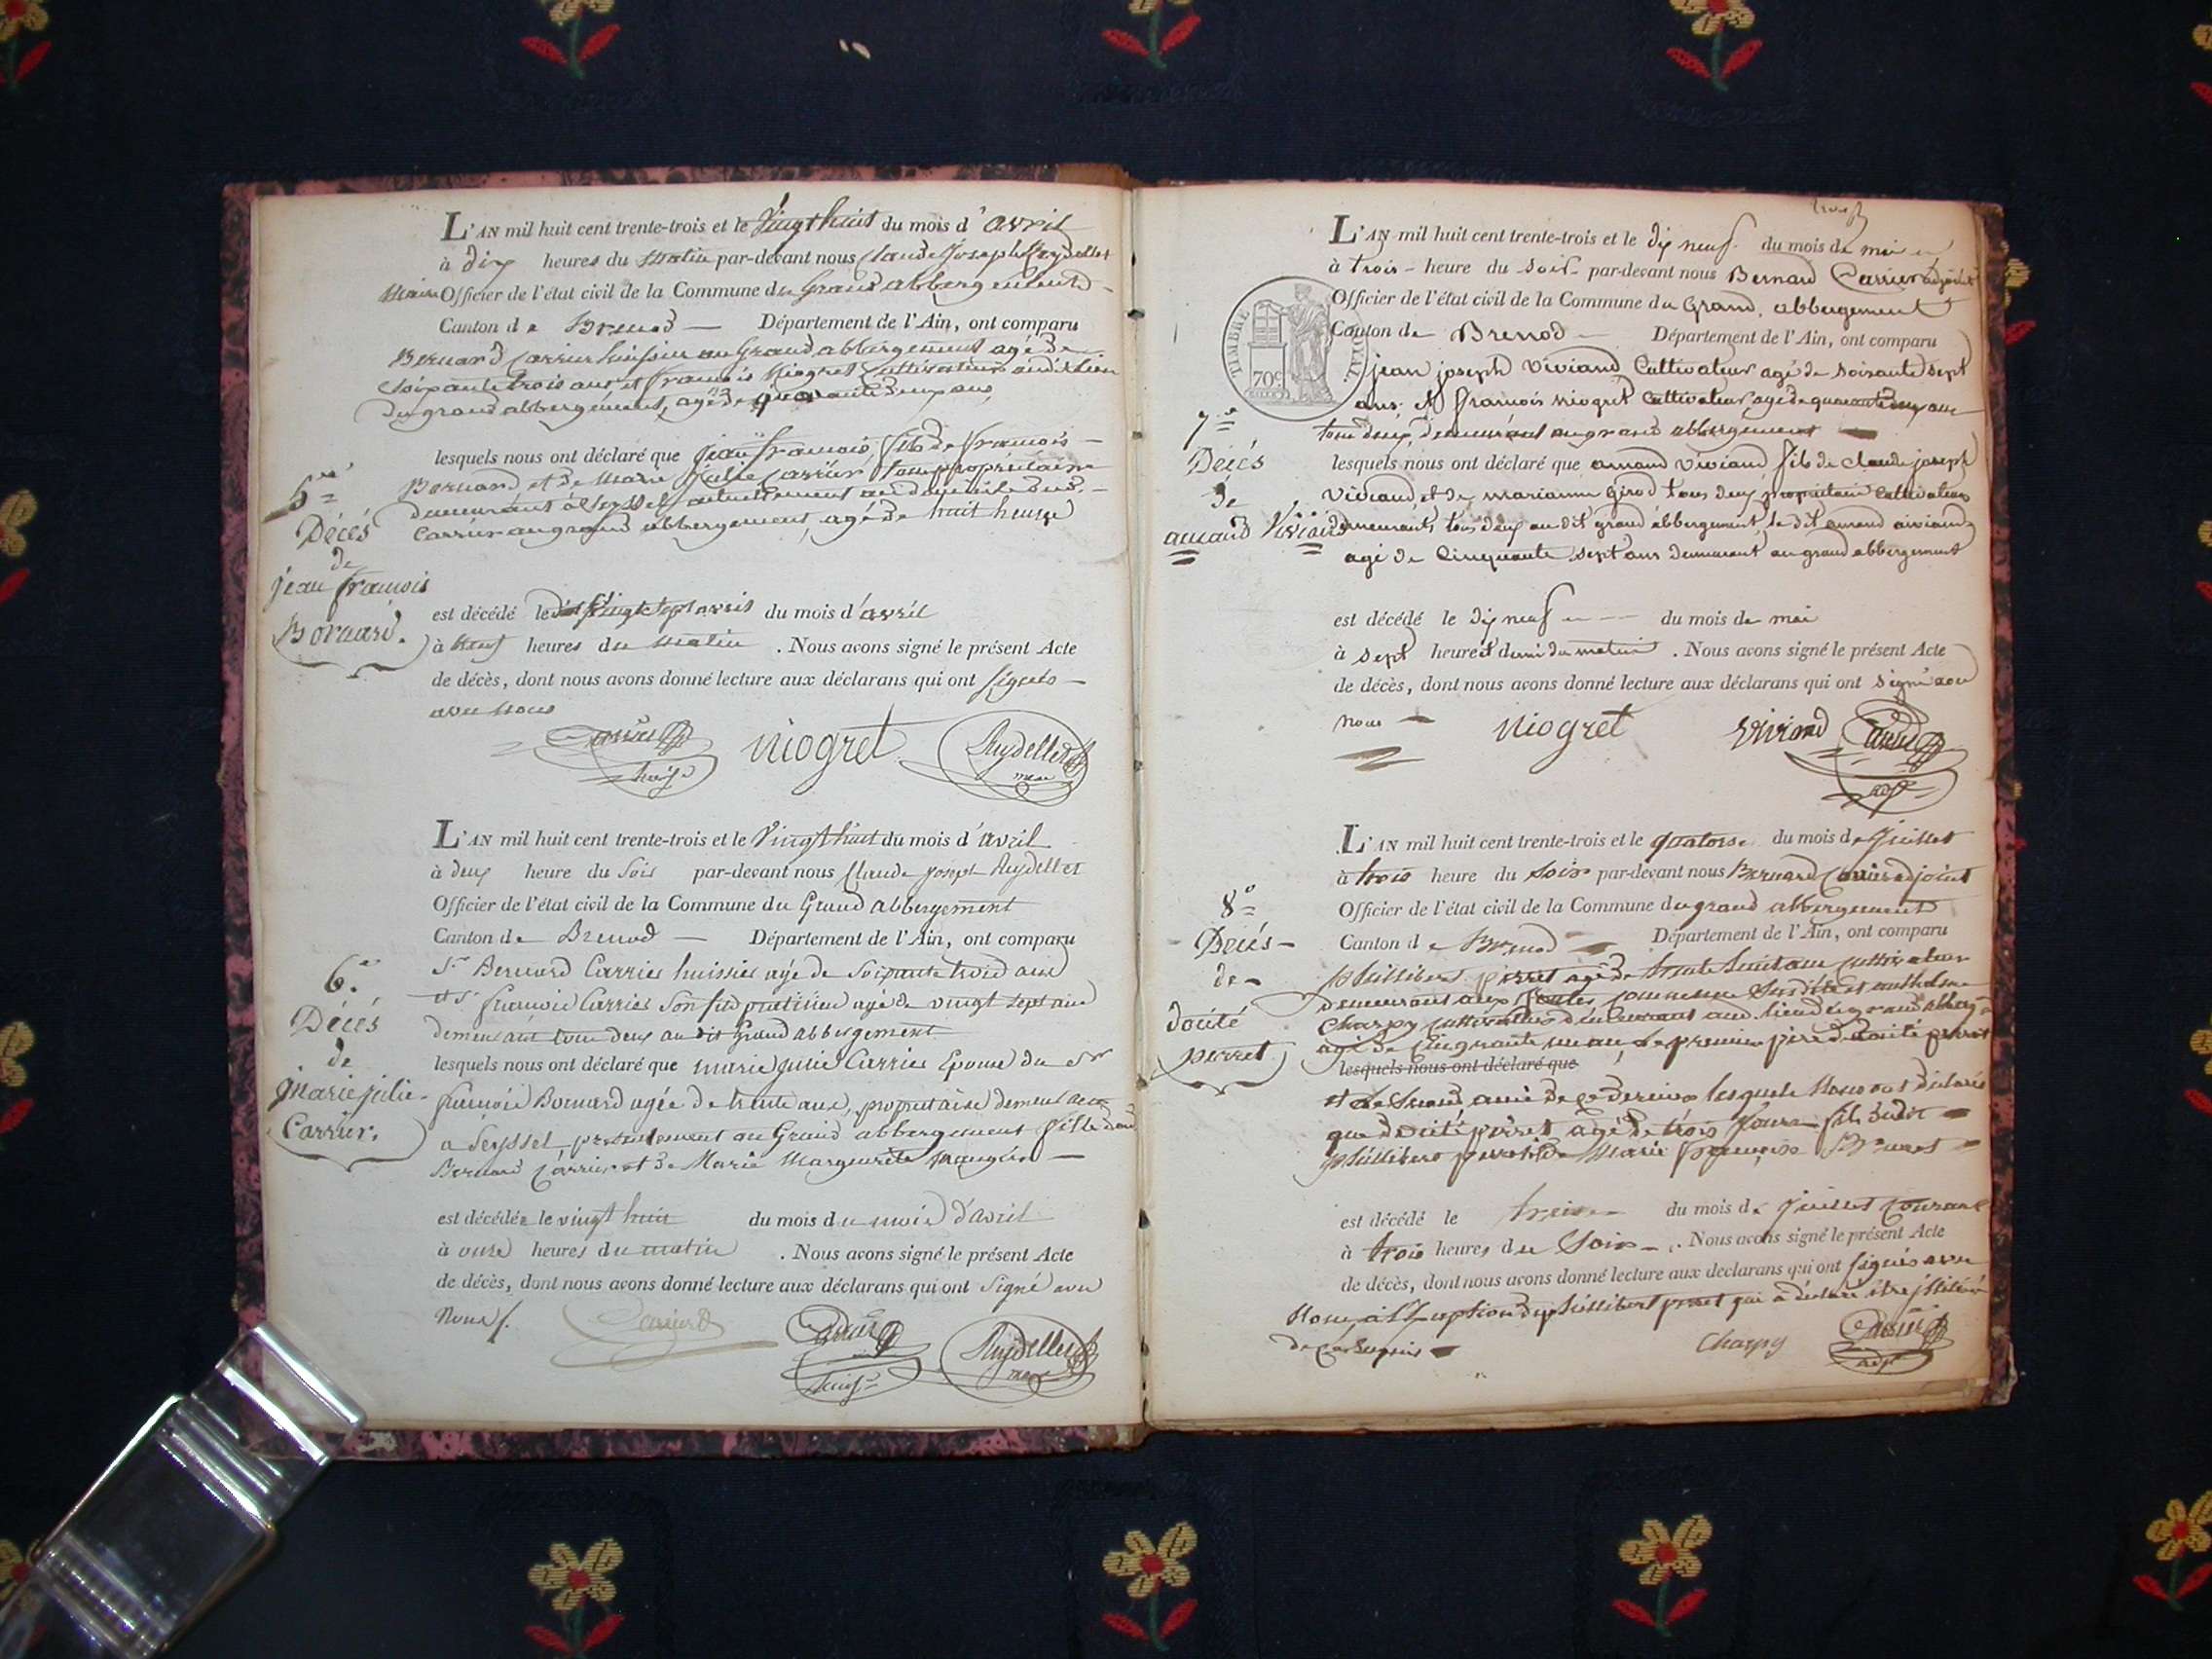 L'AN mil huit cent trente-trois et le Vingt huit du mois d'avril
à dix heures du Matin par-devant nous Claude Joseph Reydellet
Maire Officier de l'état civil de la Commune du Grand abbergement
Canton de Brenod — Département de l'Ain, ont comparu
Bernard Carrier huissier au Grand abbergement agé de
Soixante trois ans et francois Niogret Cultivateur audit lieu
du grand abbergement, agé de quarante deux ans,
lesquels nous ont déclaré que jean francois, fils de francois
Bornard et de Marie julie carrier tous propriétaire
demeurant à Seyssel actuellement au domicile
Carrier au grand abbergement, agé de huit heures
5me
Décés
de
jean francois
Bornard.
est décédé le vingt sept avril du mois d'avril
à neuf heures du Matin . Nous avons signé le présent Acte
de décès, dont nous avons donné lecture aux déclarans qui ont signés
avec Nous
Carrier niogret Reydellet
huiss maire
L'AN mil huit cent trente-trois et le Vingt huit du mois d'avril
à deux heure du Soir par-devant nous Claude joseph Reydellet
Officier de l'état civil de la Commune du Grand abbergement
Canton de Brenod — Département de l'Ain, ont comparu
Sr Bernard Carrier huissier agé de Soixante trois ans
et Sr francois Carrier Son fils praticien agé de vingt sept ans
demeurant tous deux au dit Grand abbergement
lesquels nous ont déclaré que marie julie Carrier Epouse du Sr
francois Bornard agée de trente ans, propriétaire demeurant
a Seyssel, presentement au Grand abbergement fille dud
Bernard Carrier et de Marie Margueritte
6e
Décés
de
Marie julie
Carrier.
est décédée le vingt huit du mois du mois d'avril
à onze heures du matin . Nous avons signé le présent Acte
de décès, dont nous avons donné lecture aux déclarans qui ont Signé avec
Nous /.
Carrier Carrier Reydellet
huiss maire
L'AN mil huit cent trente-trois et le dix neuf du mois de mai
à trois heure du soir par-devant nous Bernard Carrier adjoint
Officier de l'état civil de la Commune du Grand abbergement
Canton de Brenod Département de l'Ain, ont comparu
TIMBRE ROYAL
70c
jean joseph Viviand Cultivateur agé de soixante sept
ans et francois niogret Cultivateur agé de quarante deux ans
tous deux demeurant au grand abbergement
lesquels nous ont déclaré que amand Viviand fils de claude joseph
Viviand et de marianne Girod tous deux propriétaire Cultivateur
demeurants tous deux au dit grand abbergement le dit amand viviand
agé de Cinquante sept ans demeurant au grand abbergement
7e
Décés
de
amand Viviand
est décédé le dix neuf du mois de mai
à sept heure et demi du matin . Nous avons signé le présent Acte
de décès, dont nous avons donné lecture aux déclarans qui ont signé avec
nous niogret Viviand Carrier
adjt
L'AN mil huit cent trente-trois et le quatorse du mois de Juillet
à trois heure du soir par-devant nous Bernard Carrier adjoint
Officier de l'état civil de la Commune du grand abbergement
Canton de Brenod Département de l'Ain, ont comparu
philibert perret agé de trente huit ans cultivateur
demeurant aux commune susdite et anthelme
Charpy cultivateur demeurant au lieu du grand abberg
agé de Cinquante un an, le premier père de doité perret
lesquels nous ont déclaré que
et le second ami de ce dernier lesquels Nous ont déclaré
que doité perret agé de trois jours fils dudit
philibert perret et de Marie françoise
8e
Décés
de
doité
perret
est décédé le treise du mois de juillet courant
à trois heures du Soir . Nous avons signé le présent Acte
de décès, dont nous avons donné lecture aux déclarans qui ont signés avec
Nous à l'Exeption de philibert perret qui a déclaré être illitéré
de ce requis Charpy Carrier
adjt